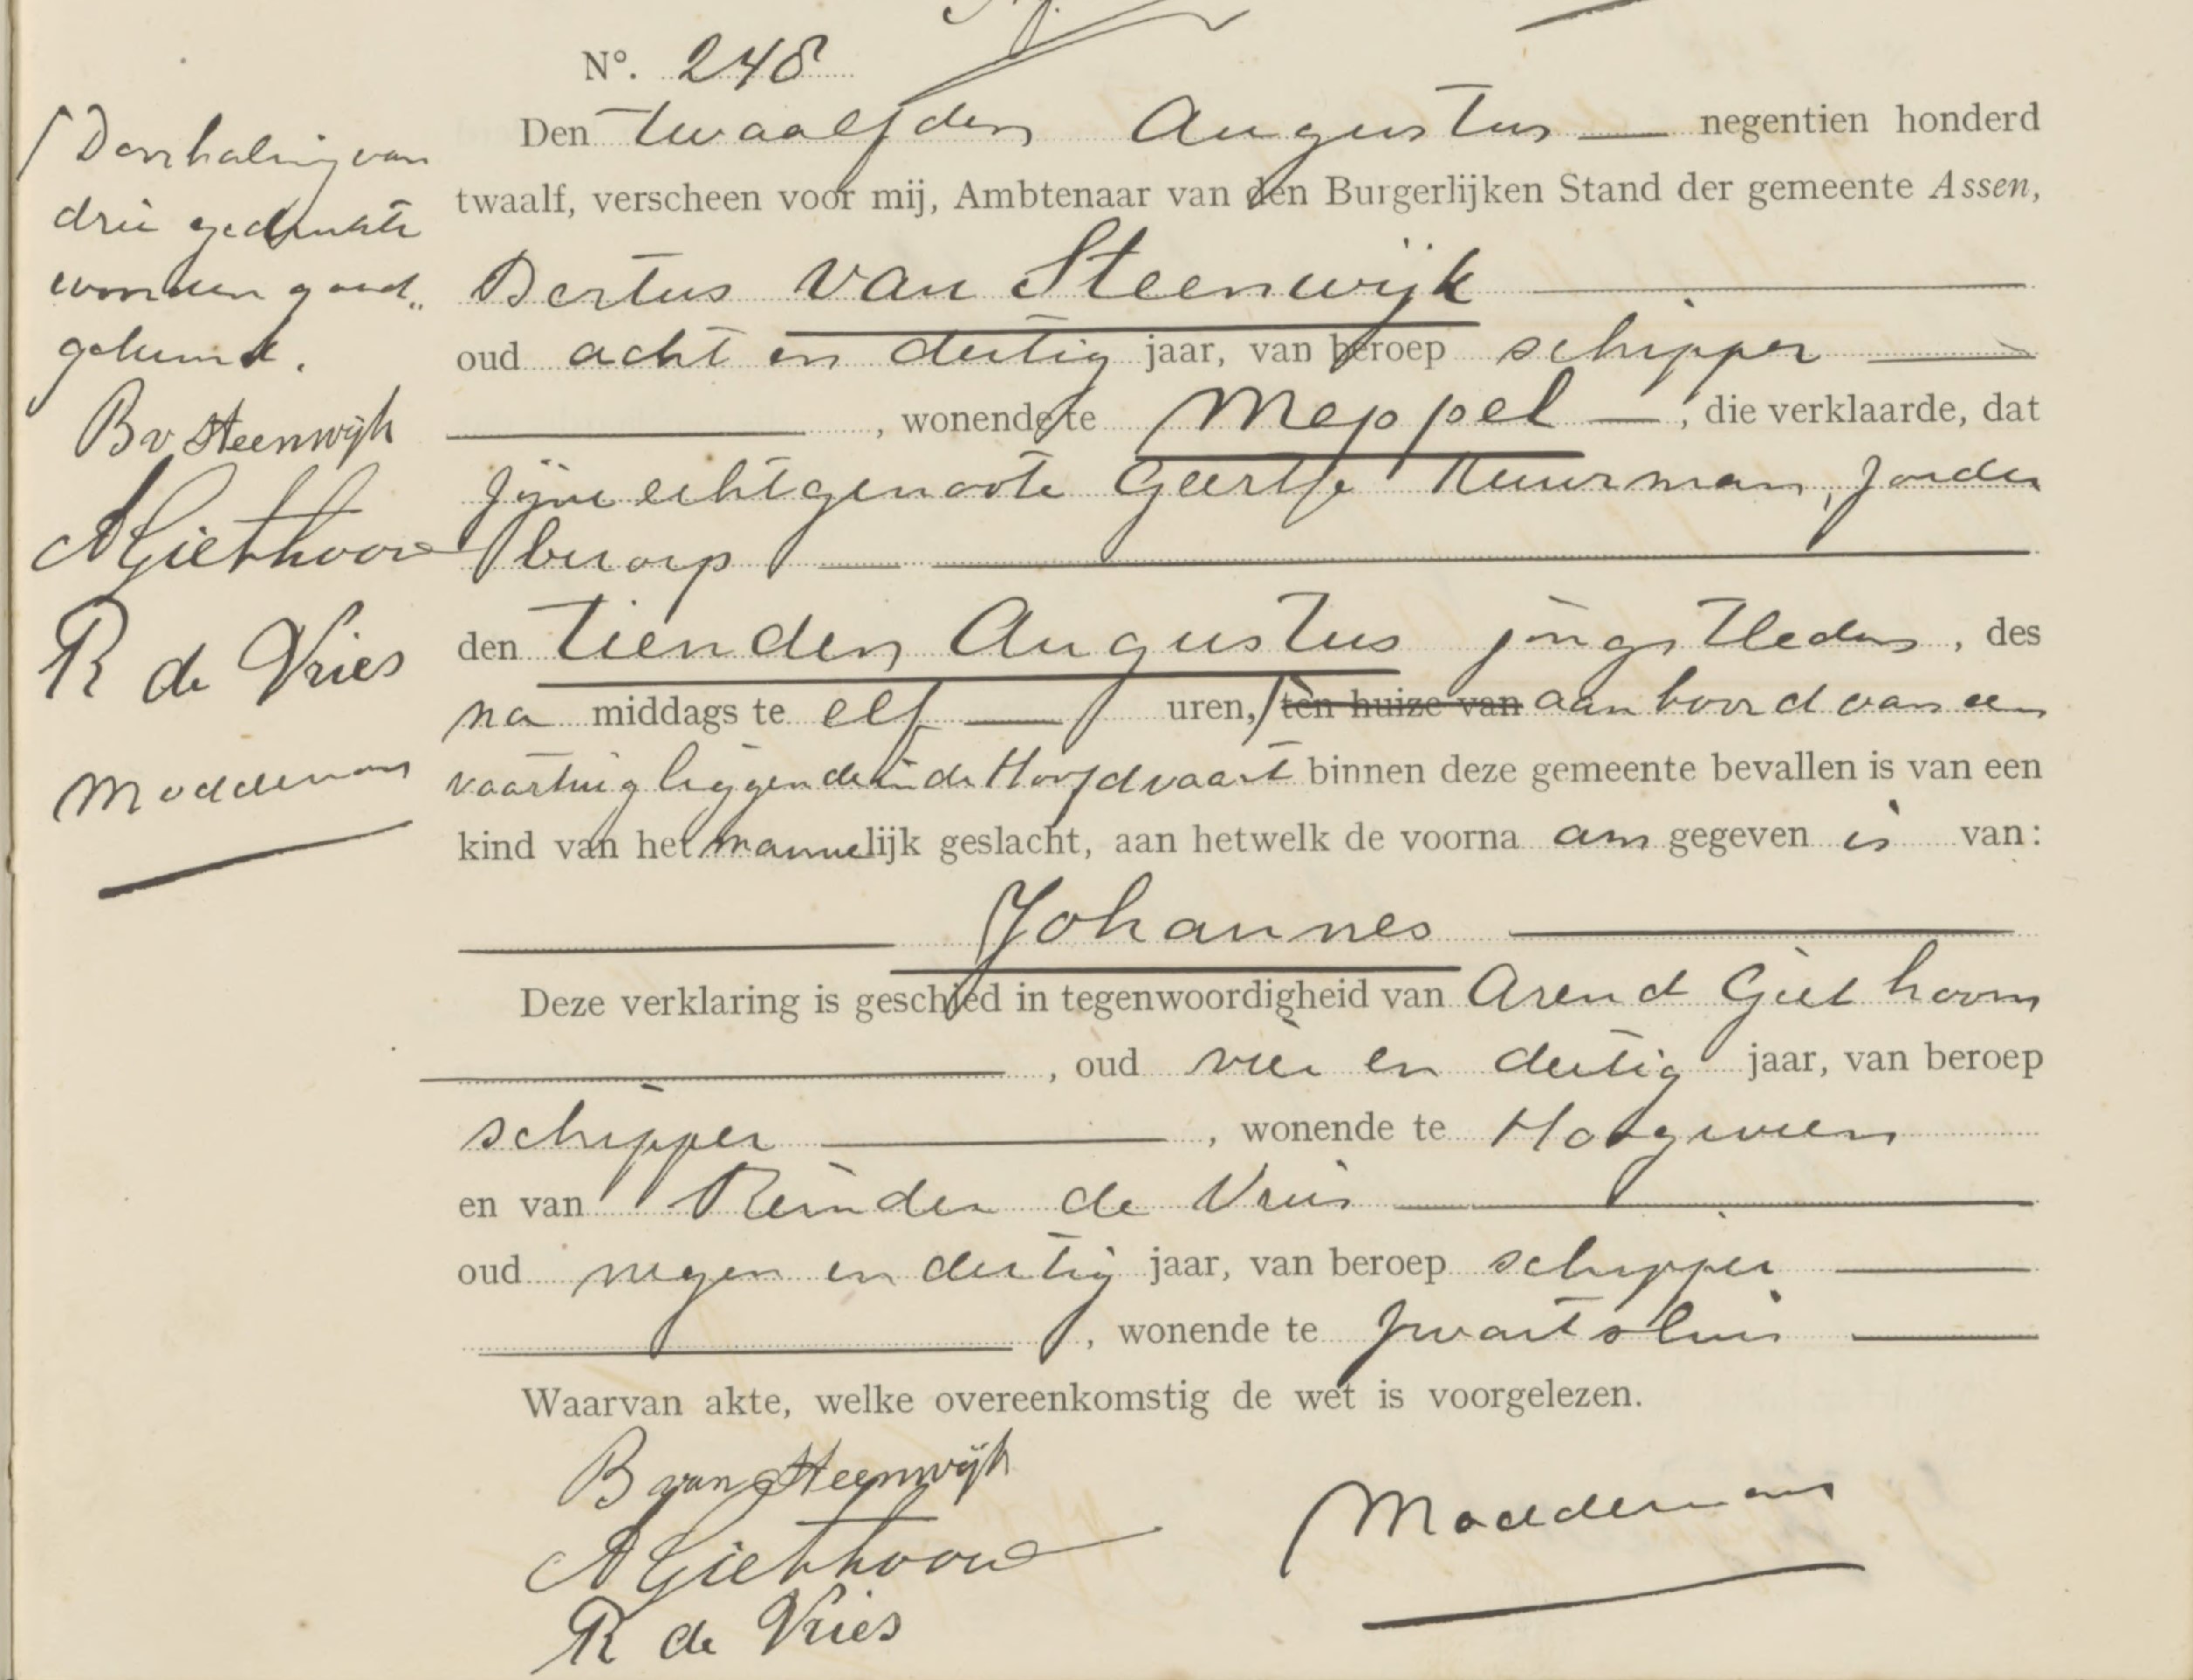 Nº. 248
Den twaalfden Augustus negentien honderd
twaalf, verscheen voor mij, Ambtenaar van den Burgerlijken Stand der gemeente Assen,
Bertus van Steenwijk
oud acht en dertig jaar, van beroep schipper
, wonende te Meppel, die verklaarde, dat
zijne echtgenoote Geertje Kuurman, zonder
beroep
den tienden Augustus jongstleden, des
na middags te elf uren, / ten huize van aan boord van een
vaartuig liggende in de Hoofdvaart binnen deze gemeente bevallen is van een
kind van het mannelijk geslacht, aan hetwelk de voorna am gegeven is van:
Johannes
Deze verklaring is geschied in tegenwoordigheid van Arend Giethoorn
, oud vier en dertig jaar, van beroep
schipper, wonende te Hoogeveen
en van Reinder de Vries
oud negen en dertig jaar, van beroep schipper
, wonende te Zwartsluis
Waarvan akte, welke overeenkomstig de wet is voorgelezen.
B van Steenwijk
A Giethoorn
R de Vries
Moddermans
/ Doorhaling van
drie gedrukte
woorden goed„
gekeurd.
B v Steenwijk
A Giethoorn
R de Vries
Moddermans